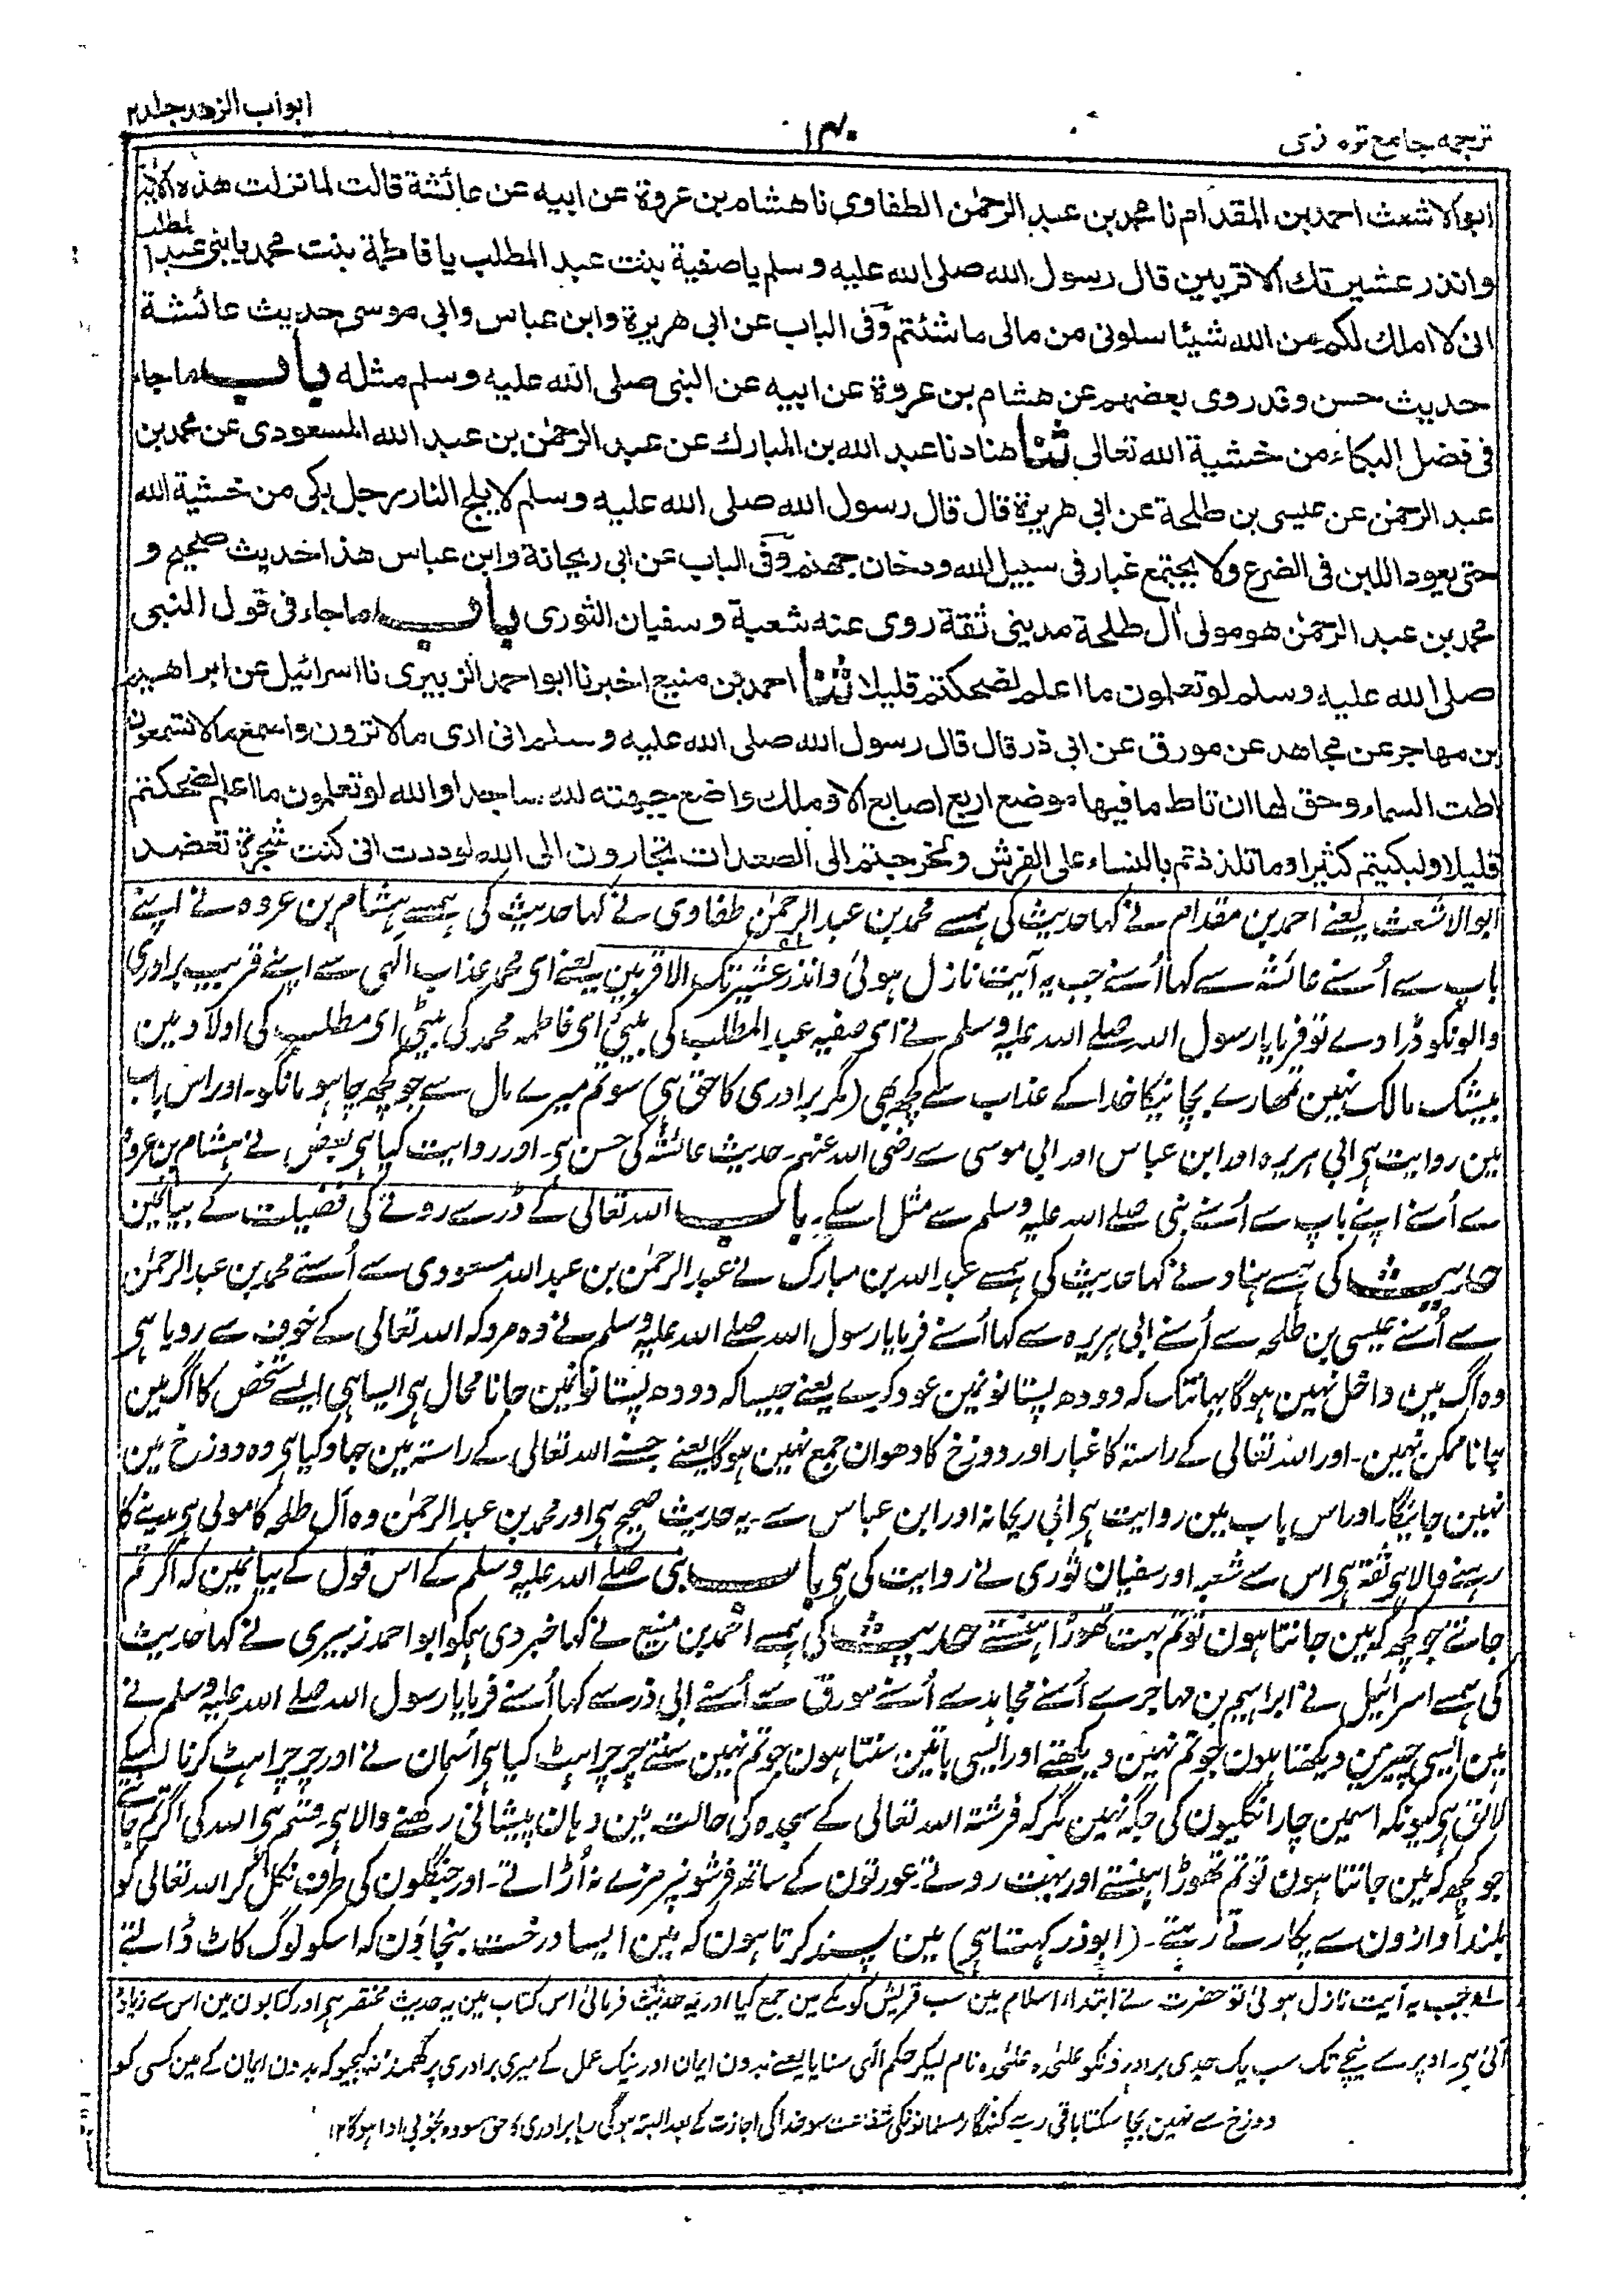 ترجمہ جامع ترمذی
۱۴۰
ابواب الزهد جلد ۲
ابوالاشعث احمد بن المقدام نا محمد بن عبد الرحمٰن الطفاوی نا هشام بن عروة عن ابیه عن عائشة قالت لما نزلت هذه الاٰیة
وانذر عشیرتك الاقربین قال رسول الله صلی الله علیه وسلم یا صفیة بنت عبد المطلب یا فاطمة بنت محمد یا بنی عبد المطلب
انی لا املك لكم من الله شیئا سلونی من مالی ما شئتم وفی الباب عن ابی هریرة وابن عباس وابی موسی حدیث عائشة
حدیث حسن وقد روی بعضهم عن هشام بن عروة عن ابیه عن النبی صلی الله علیه وسلم مثله باب ما جاء
فی فضل البكاء من خشیة الله تعالی ثنا هناد نا عبد الله بن المبارك عن عبد الرحمٰن بن عبد الله المسعودی عن محمد بن
عبد الرحمٰن عن عیسی بن طلحة عن ابی هریرة قال قال رسول الله صلی الله علیه وسلم لا یلج النار رجل بكی من خشیة الله
حتی یعود اللبن فی الضرع ولا یجتمع غبار فی سبیل الله ودخان جهنم وفی الباب عن ابی ریحانة وابن عباس هذا حدیث صحیح و
محمد بن عبد الرحمٰن هو مولی اٰل طلحة مدینی ثقة روی عنه شعبة وسفیان الثوری باب ما جاء فی قول النبی
صلی الله علیه وسلم لو تعلمون ما اعلم لضحكتم قلیلا ثنا احمد بن منیع اخبرنا ابو احمد الزبیری نا اسرائیل عن ابراهیم
بن مهاجر عن مجاهد عن مورق عن ابی ذر قال قال رسول الله صلی الله علیه وسلم انی اری ما لا ترون واسمع ما لا تسمعون
اطت السماء وحق لها ان تاط ما فیها موضع اربع اصابع الا وملك واضع جبهته لله ساجدا والله لو تعلمون ما اعلم لضحكتم
قلیلا ولبكیتم كثیرا وما تلذذتم بالنساء علی الفرش ولخرجتم الی الصعدات تجارون الی الله لوددت انی كنت شجرة تعضد
ابو الاشعث یعنے احمد بن مقدام نے کہا حدیث کی ہمسے محمد بن عبد الرحمٰن طفاوی نے کہا حدیث کی ہمسے ہشام بن عروہ نے اپنے
باپ سے اُسنے عائشہ سے کہا اُسنے جب یہ آیت نازل ہوئی وانذر عشیرتک الاقربین یعنے ای محمد عذاب الٰہی سے اپنے قریب برادری
والونکو ڈرا دے تو فرمایا رسول اللہ صلے اللہ علیہ وسلم نے ای صفیہ عبد المطلب کی بیٹی ای فاطمہ محمد کی بیٹی ای مطلب کی اولاد مین
بیشک مالک نہین تمھارے بچانیکا خدا کے عذاب سے کچھ بھی (مگر برادری کا حق ہی) سو تم میرے مال سے جو کچھ چاہو مانگو۔ اور اس باب
مین روایت ہی ابی ہریرہ اور ابن عباس اور ابی موسی سے رضی اللہ عنہم۔ حدیث عائشہ کی حسن ہی۔ اور روایت کیا ہی بعض نے ہشام بن عروہ
سے اُسنے اپنے باپ سے اُسنے نبی صلے اللہ علیہ وسلم سے مثل اسکے۔ باب اللہ تعالی کے ڈر سے رونے کی فضیلت کے بیانمین
حدیث کی ہمسے ہناد نے کہا حدیث کی ہمسے عبد اللہ بن مبارک نے عبد الرحمٰن بن عبد اللہ مسعودی سے اُسنے محمد بن عبد الرحمٰن
سے اُسنے عیسی بن طلحہ سے اُسنے ابی ہریرہ سے کہا اُسنے فرمایا رسول اللہ صلے اللہ علیہ وسلم نے وہ مرد کہ اللہ تعالی کے خوف سے رویا ہی
وہ آگ مین داخل نہین ہوگا یہانتک کہ دودھ پستانونمین عود کرے یعنے جیسا کہ دودھ پستانونمین جانا محال ہی ایسا ہی ایسے شخص کا آگ مین
جانا ممکن نہین۔ اور اللہ تعالی کے راستہ کا غبار اور دوزخ کا دھوان جمع نہین ہوگا یعنے جسنے اللہ تعالی کے راستہ مین جہاد کیا ہی وہ دوزخ مین
نہین جائیگا۔ اور اس باب مین روایت ہی ابی ریحانہ اور ابن عباس سے۔ یہ حدیث صحیح ہی اور محمد بن عبد الرحمٰن وہ آل طلحہ کا مولی ہی مدینے کا
رہنے والا ہی ثقہ ہی اس سے شعبہ اور سفیان ثوری نے روایت کی ہی باب نبی صلے اللہ علیہ وسلم کے اس قول کے بیانمین کہ اگر تم
جانتے جو کچھ کہ مین جانتا ہون تو تم بہت تھوڑا ہنستے حدیث کی ہمسے احمد بن منیع نے کہا خبر دی ہمکو ابو احمد زبیری نے کہا حدیث
کی ہمسے اسرائیل نے ابراہیم بن مہاجر سے اُسنے مجاہد سے اُسنے مورق سے اُسنے ابی ذر سے کہا اُسنے فرمایا رسول اللہ صلے اللہ علیہ وسلم نے
مین ایسی چیزین دیکھتا ہون جو تم نہین دیکھتے اور ایسی باتین سنتا ہون جو تم نہین سنتے چرچراہٹ کیا ہی آسمان نے اور چرچراہٹ کرنا اسکے
لائق ہی کیونکہ اسمین چار انگلیون کی جگہ نہین مگر کہ فرشتہ اللہ تعالی کے سجدہ کی حالت مین وہان پیشانی رکھنے والا ہی۔ قسم ہی اللہ کی اگر تم جانتے
جو کچھ کہ مین جانتا ہون تو تم تھوڑا ہنستے اور بہت روتے۔ عورتون کے ساتھ فرشونپر مزے نہ اُڑاتے۔ اور جنگلون کی طرف نکل کر اللہ تعالی کو
بلند آوازون سے پکارتے رہتے۔ (ابوذر کہتا ہی) مین پسند کرتا ہون کہ مین ایسا درخت بنجاؤن کہ اسکو لوگ کاٹ ڈالتے
سلہ جب یہ آیت نازل ہوئی تو حضرت نے ابتداء اسلام مین سب قریش کو مکے مین جمع کیا اور یہ حدیث فرمائی اس کتاب مین یہ حدیث مختصر ہی اور کتابون مین اس سے زیادہ
آئی ہی۔ اوپر سے نیچے تک سب یک جدی برادرونکو علٰحدہ علٰحدہ نام لیکر حکم الٰہی سنایا یعنے بدون ایمان اور نیک عمل کے میری برادری پر گھمنڈ نہ کیجیو کہ بدون ایمان کے مین کسی کو
دوزخ سے نہین بچا سکتا باقی رہے گنہگار مسلمانونکی شفاعت سو خدا کی اجازت کے بعد البتہ ہوگی رہا برادری کا حق سو وہ بخوبی ادا ہوگا ۱۲